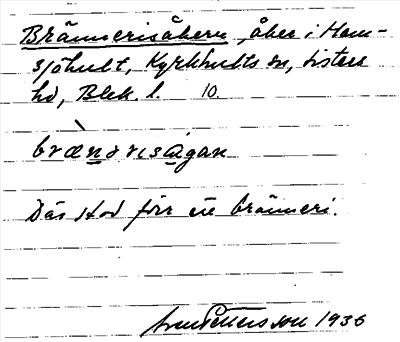 Brännerisåkern, åker i Ham-
sjöhult, Kyrkhults sn, Listers
hd, Blek. l. 10.
brænərisågan
Där stod förr ett bränneri.
Sven Pettersson 1936